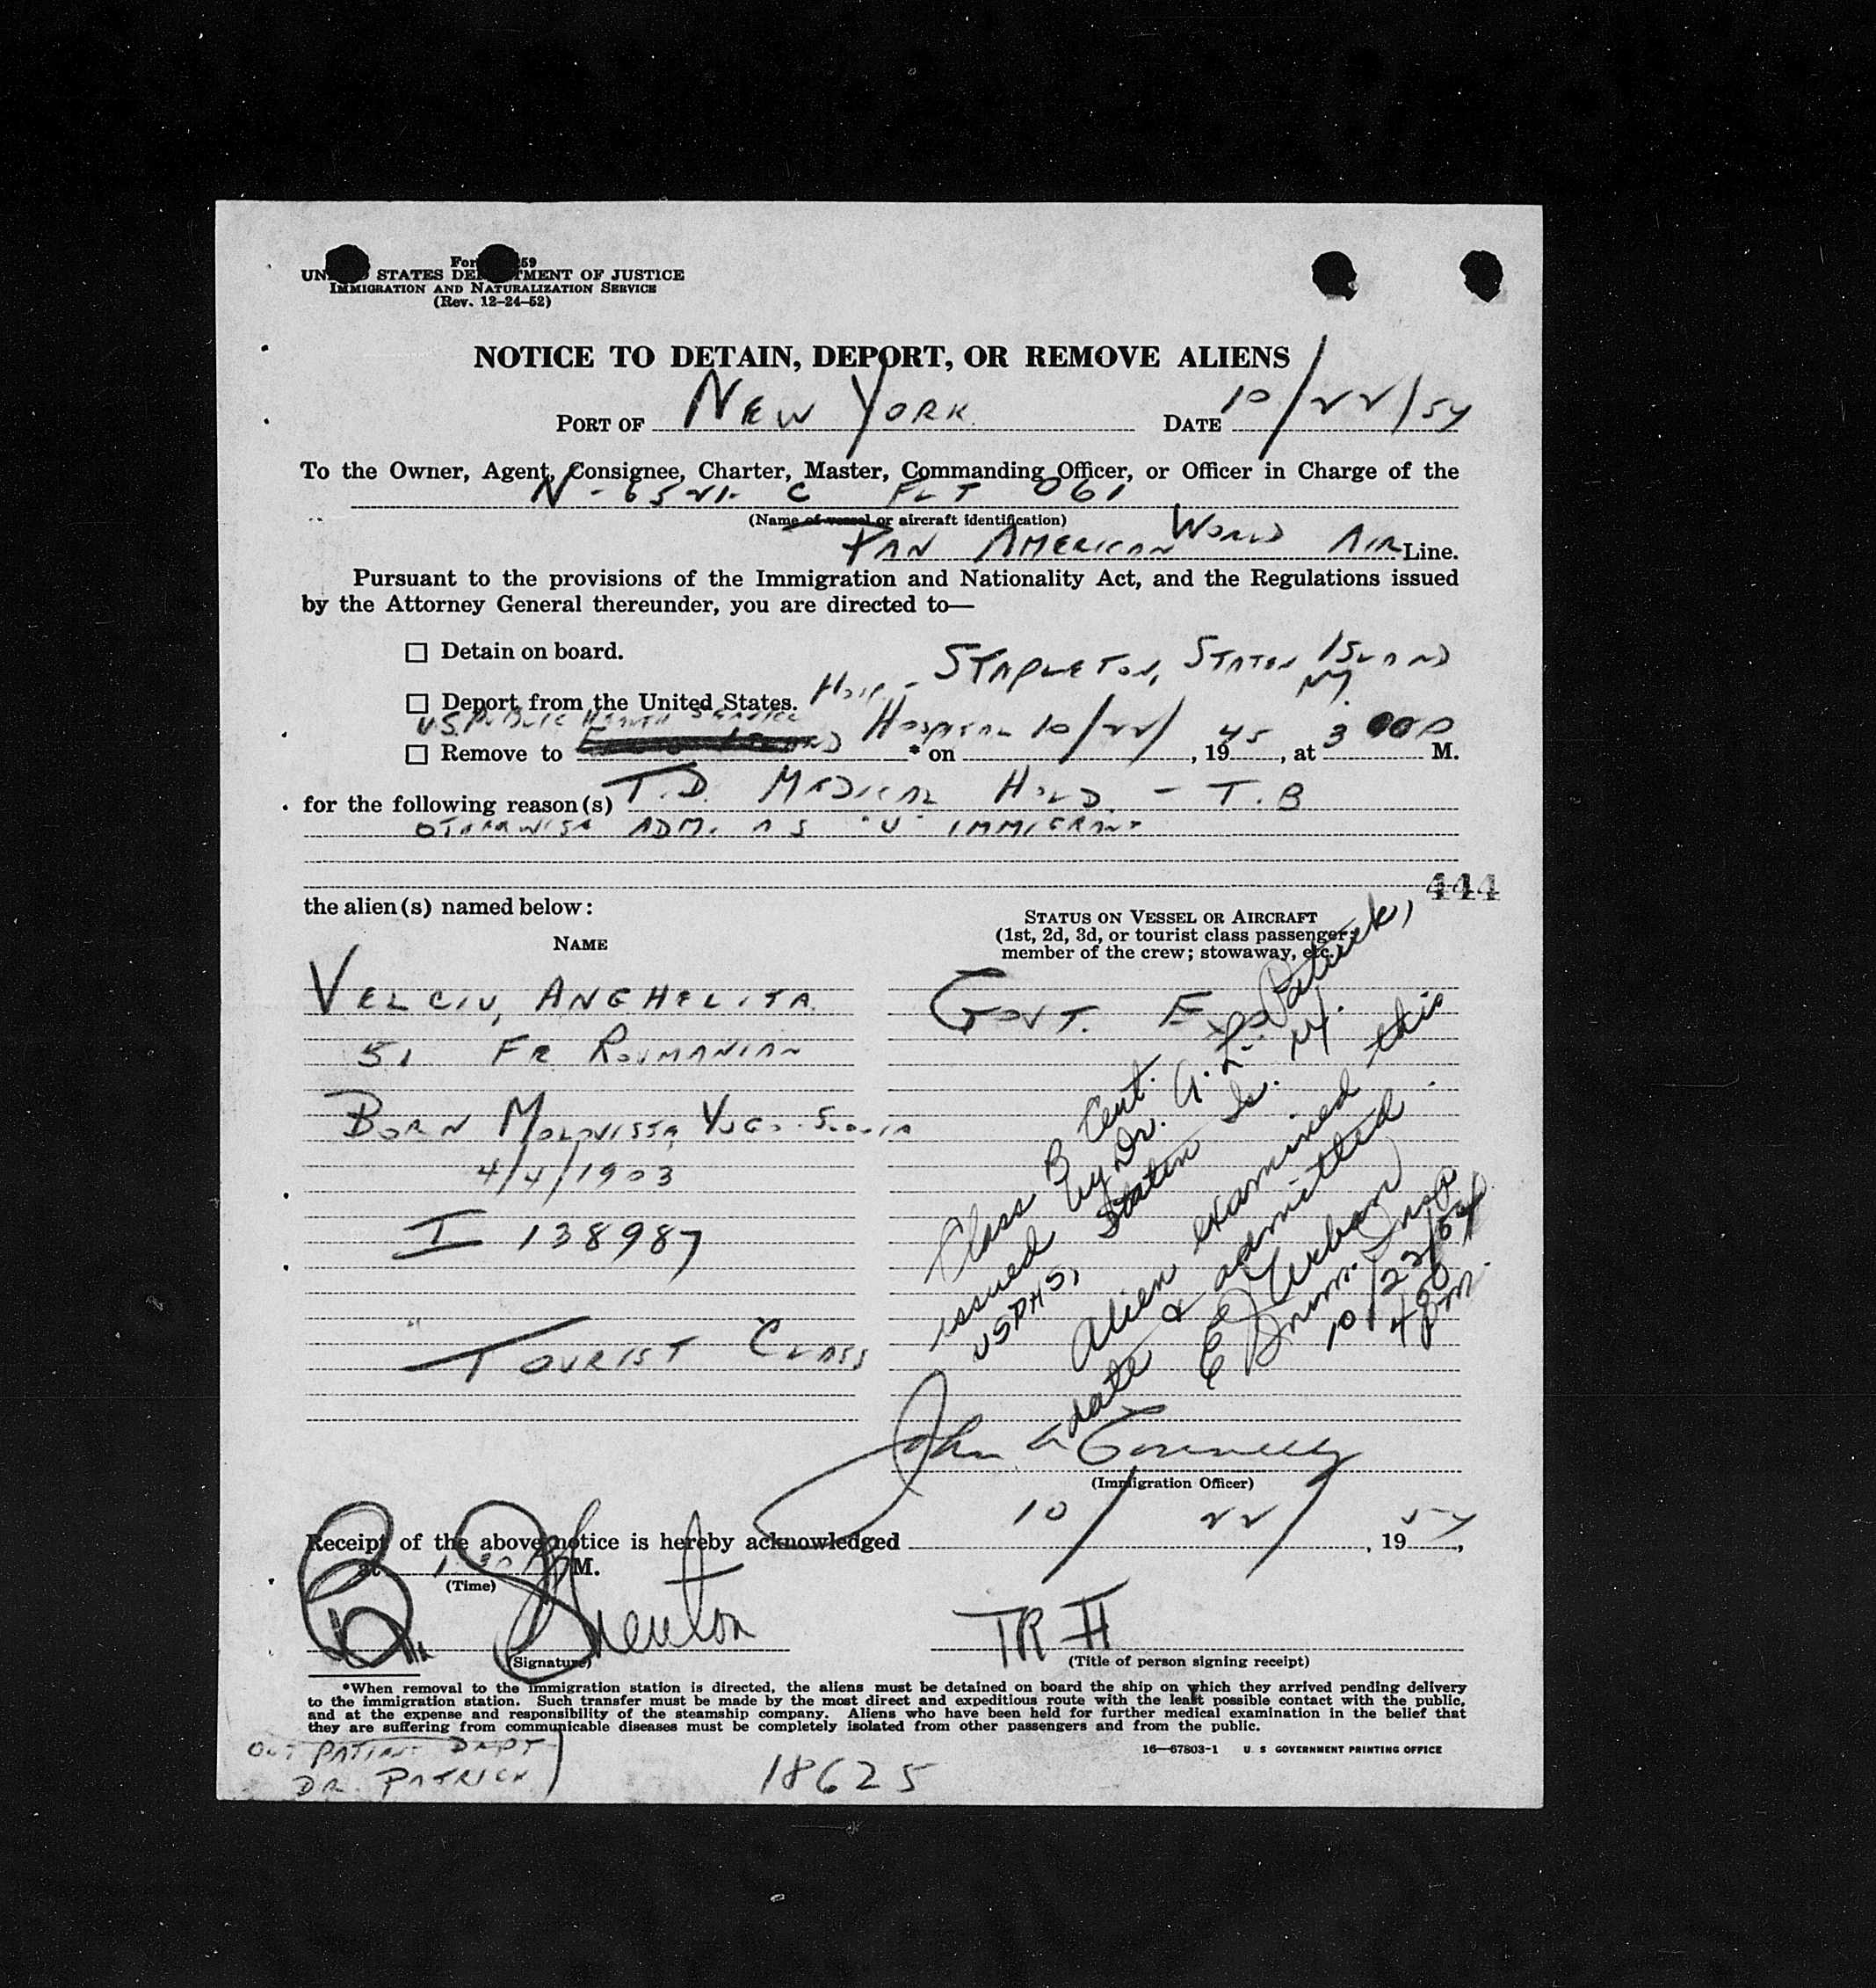 For 59
UN STATES DE TMENT OF JUSTICE
IMMIGRATION AND NATURALIZATION SERVICE
(Rev. 12-24-52)
NOTICE TO DETAIN, DEPORT, OR REMOVE ALIENS
PORT OF NEW YORK DATE 10/22/54
To the Owner, Agent, Consignee, Charter, Master, Commanding Officer, or Officer in Charge of the
N-6521-C FLT 061
(Name of vessel or aircraft identification)
PAN AMERICAN WORLD AIR Line.
Pursuant to the provisions of the Immigration and Nationality Act, and the Regulations issued
by the Attorney General thereunder, you are directed to—
☐ Detain on board.
STAPLETON, STATEN ISLAND
☐ Deport from the United States. HOSP - N.Y.
U.S. PUBLIC HEALTH SERVICE
☐ Remove to HOSPITAL * on 10/22/, 1945, at 3 00 P M.
for the following reason(s) T.D. MEDICAL HOLD - T.B
OTHERWISE ADM. AS "U" IMMIGRANT
444
the alien(s) named below:
STATUS ON VESSEL OR AIRCRAFT
(1st, 2d, 3d, or tourist class passenger;
member of the crew; stowaway, etc.)
NAME
VELCIU, ANGHELITA
GOVT. EXP
51 FR ROUMANIAN
BORN MOLOVISTA, YUGO-SLAVIA
4/4/1903
I 138987
TOURIST CLASS
Class B Cent.
issued by Dr. A. L. Patrick,
USPHS, Staten Is. N.Y.
Alien examined this
date & admitted.
E J Urban
Imm. Insp
10/22/54
4 30 pm.
John Connelly
(Immigration Officer)
Receipt of the above notice is hereby acknowledged 10/22/, 1954,
at 1 30 P M.
(Time)
Shenton TR II
(Signature) (Title of person signing receipt)
*When removal to the immigration station is directed, the aliens must be detained on board the ship on which they arrived pending delivery
to the immigration station. Such transfer must be made by the most direct and expeditious route with the least possible contact with the public,
and at the expense and responsibility of the steamship company. Aliens who have been held for further medical examination in the belief that
they are suffering from communicable diseases must be completely isolated from other passengers and from the public.
16—67803-1 U. S GOVERNMENT PRINTING OFFICE
OUT PATIENT DEPT
DR. PATRICK
18625